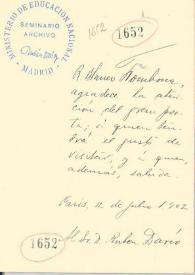 MINISTERIO DE EDUCACIÓN NACIONAL
SEMINARIO
ARCHIVO
Rubén Darío
MADRID
1602
1652
R. Blanco Fombona,
agradece la aten-
ción del gran poe-
ta, á quien ten-
drá el gusto de
visitar, y á quien,
además, saluda.
París, 12 de julio 1902
1652
Al Sr. D. Rubén Darío